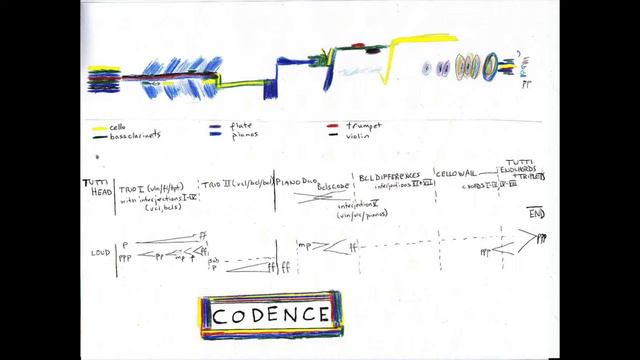 pp
cello
flute
trumpet
bassclarinets
pianos
violin
TUTTI HEAD
TRIO I (vln/fl/tpt)
with interjections I-IV
(vcl, bcls)
TRIO II (vcl/bcl/bcl)
PIANO DUO
Bcls CODE
interjection V
(vln/vlc/pianos)
BCL DIFFERENCES
interjections VI + VII
CELLO WALL
CHORDS I-IV
TUTTI
ENDCHORDS
+ TRIPLETS
V-VIII
END
LOUD
p ff
ppp pp mp f ff
sub
p ff
ff
mp ff
ppp ppp
CODENCE